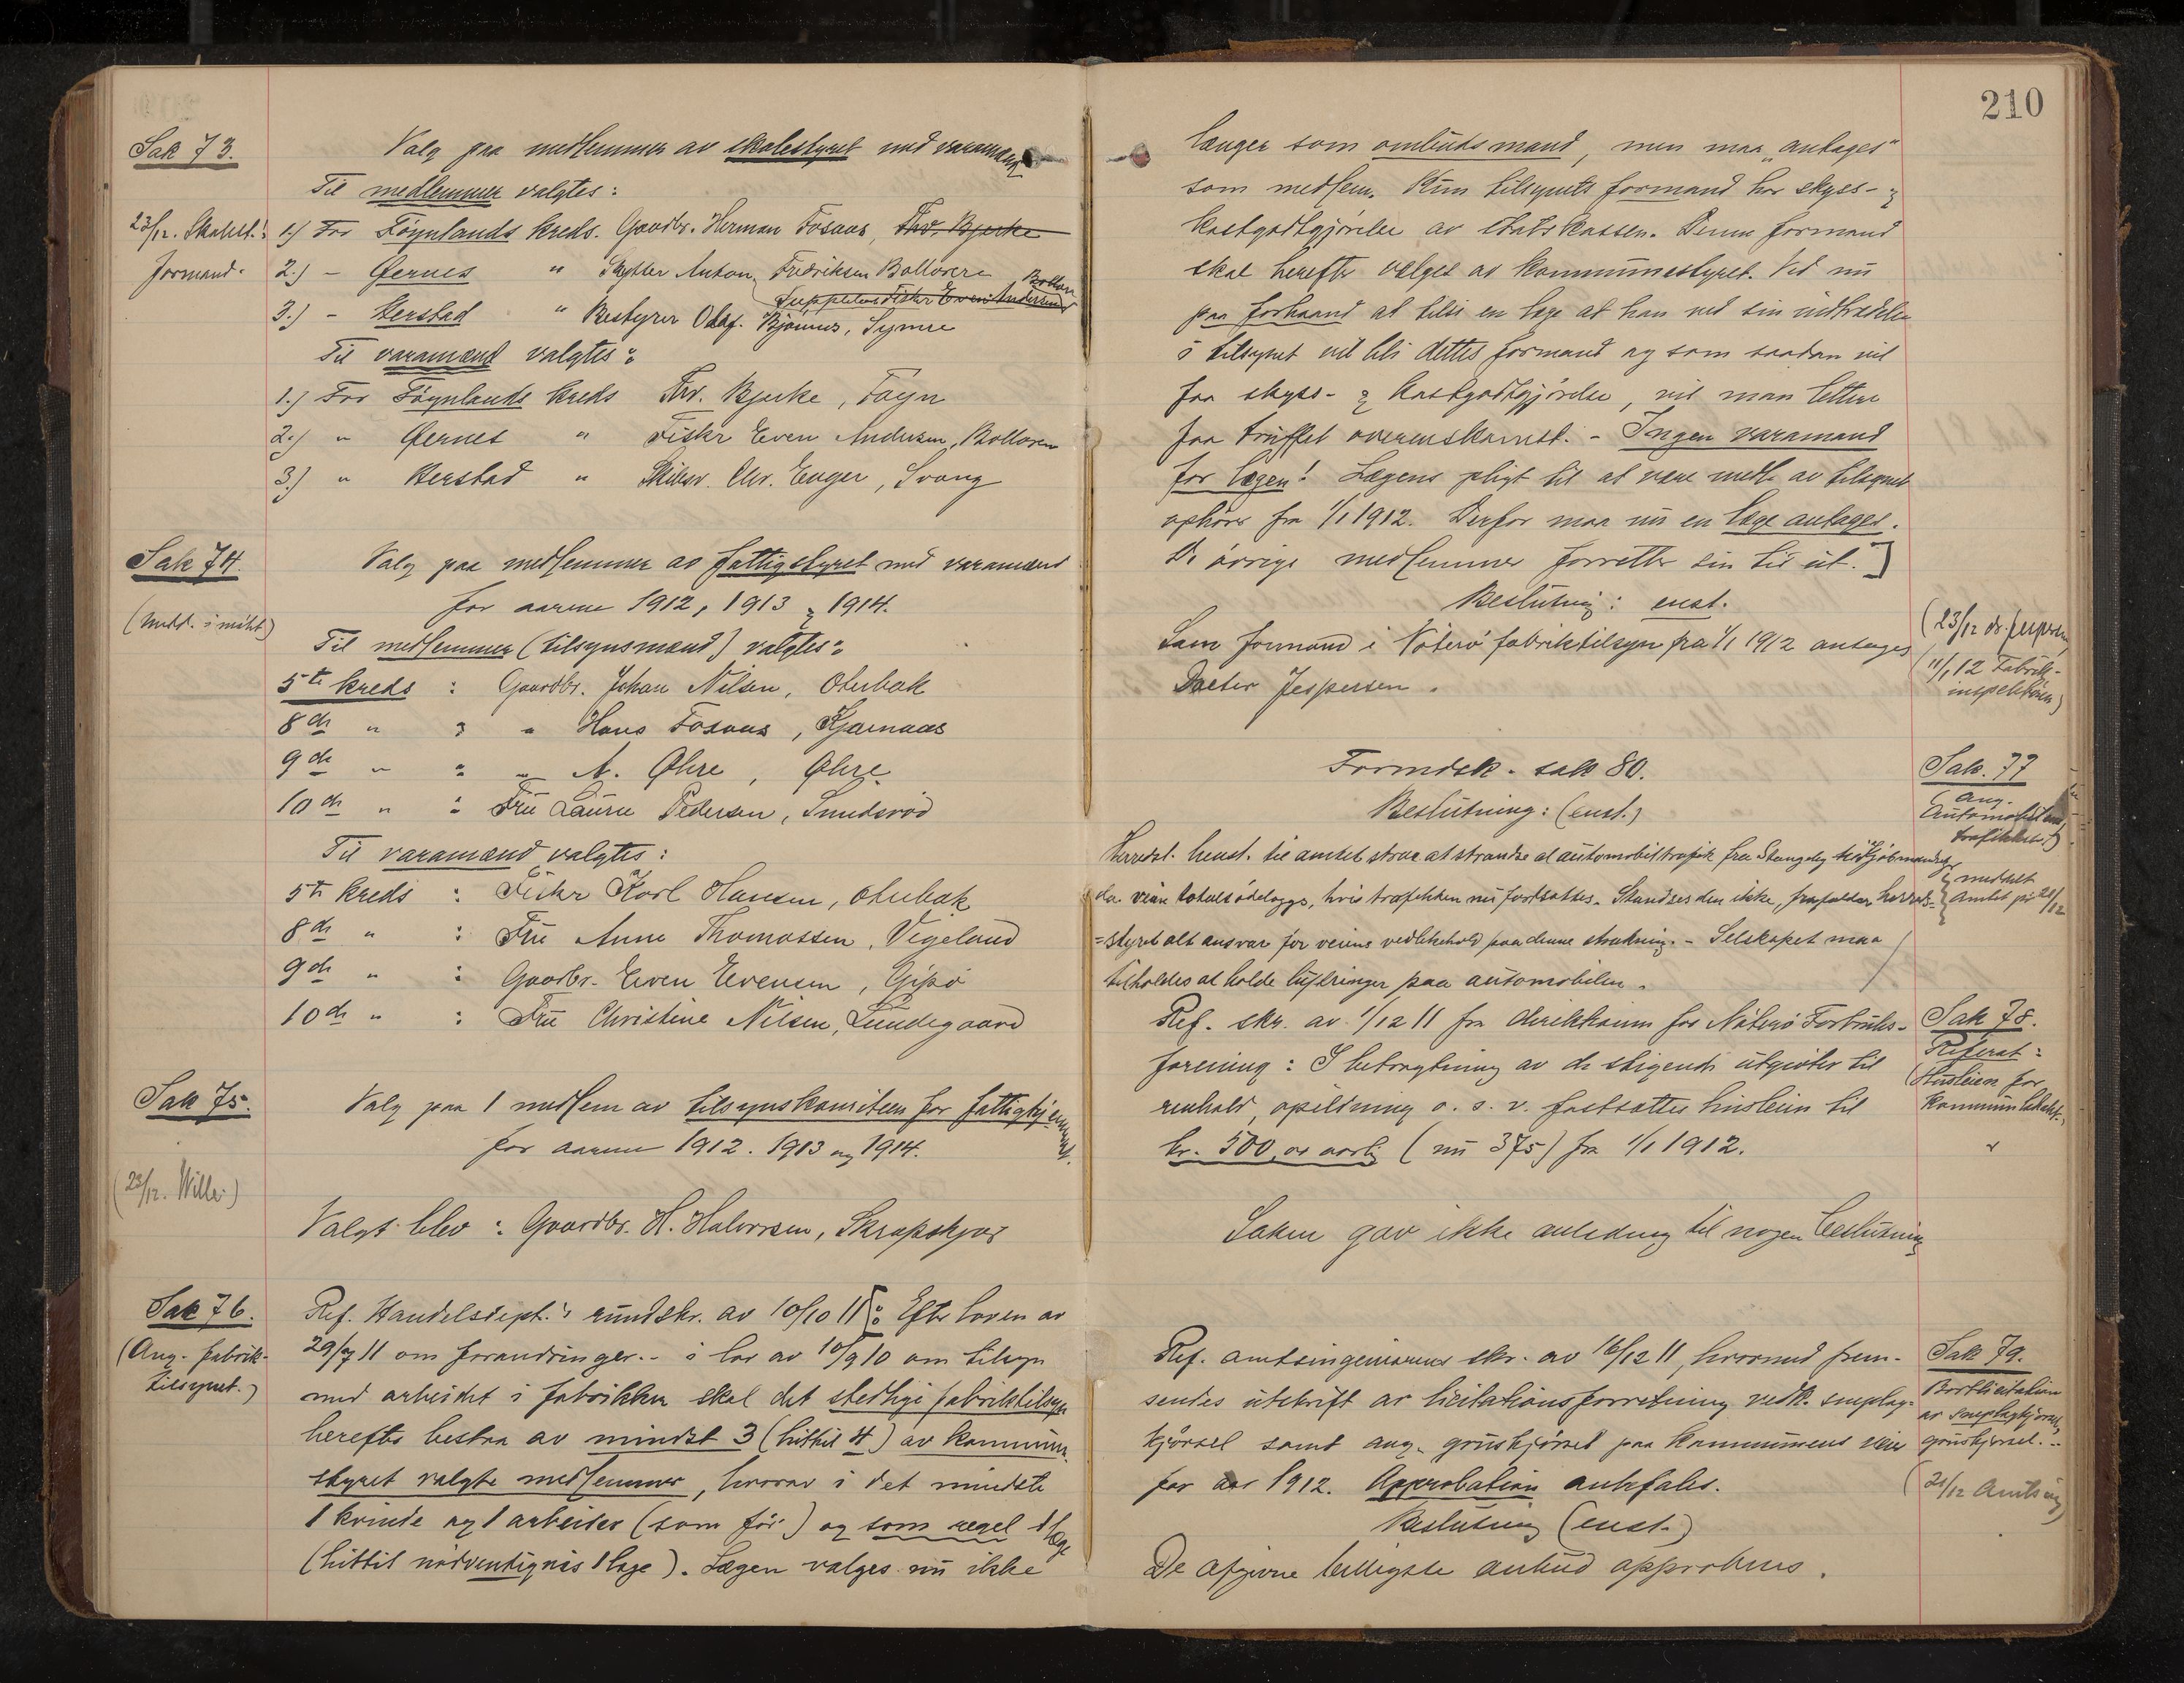 Sak 73.
Valg paa medlemmer av skolestyret med varamænd
Til medlemmer valgtes:
23/12. Skolest.'s
formand.
1.) For Föynlands kreds. Gaardbr. Herman Fosaas, Thv. Bjerke
2.) - Öernes " Skytter Anton Fredriksen Bollæren
Suppleant Fisker Even Andersen Bollæren
3.) - Herstad " Bestyrer Olaf Bjönnes, Symre
Til varamænd valgtes:
1.) For Föynlands kreds Thv. Bjerke, Föyn
2.) " Öernes " Fisker Even Andersen, Bollæren
3.) " Herstad " Chr. Enger, Ivang
Sak 74.
Valg paa medlemmer av fattigstyret med varamænd
for aarene 1912, 1913 & 1914.
(medd. i möte)
Til medlemmer (tilsynsmænd) valgtes:
5te kreds : Gaardbr. Johan Nilsen, Oterbæk
8de " : " Hans Fosaas, Kjærnaas
9de " : " A. Öhre, Öhre
10de " : Fru Laura Pedersen, Sundsröd
Til varamænd valgtes:
5te kreds : Fisker Karl Hansen, Oterbæk
8de " : Fru Anne Thomassen, Vigeland
9de " : Gaardbr. Even Evensen, Gipö
10de " : Fru Christine Nilsen, Lundegaard
Sak 75.
Valg paa 1 medlem av tilsynskomiteen for fattighjemmet
for aarene 1912. 1913 og 1914.
(23/12. Wille)
Valgt blev : Gaardbr. H. Halvorsen, Skrapskjær
Sak 76.
(Ang. fabrik-
tilsynet.)
Ref. Handelsdept.'s rundskr. av 10/10 11 [: Efter loven av
29/7 11 om forandringer i lov av 10/9 10 om tilsyn
med arbeidet i fabrikker skal det stedlige fabriktilsyn
herefter bestaa av mindst 3 (hittil 4) av kommune-
styret valgte medlemmer, hvorav i det mindste
1 kvinde og 1 arbeider (som för) og som regel 1 læge
(hittil nödvendigvis 1 læge). Lægen vælges nu ikke
210
længer som ombudsmand, men maa "antages"
som medlem. Kun tilsynets formand har skyss- &
kostgodtgjörelse av statskassen. Denne formand
skal herefter vælges av kommunestyret. Ved nu
paa forhaand at tilsi en læge at han ved sin indtrædelse
i tilsynet vil bli dettes formand og som saadan vil
faa skyss- & kostgodtgjörelse, vil man lettere
faa truffet overenskomst. - Ingen varamand
for lægen! Lægens pligt til at være medl. av tilsynet
ophörer fra 1/1 1912. Derfor maa nu en læge antages.
De övrige medlemmer forretter sin tid ut.]
Beslutning: enst.
Som formand i Nöterö fabriktilsyn fra 1/1 1912 antages
Doctor Jespersen.
(23/12 dr. Jespersen,
11/1 12 Fabrik-
inspektören)
Formdsk. sak 80.
Beslutning: (enst.)
Sak. 77
(ang.
Automobil
trafikken.)
Herredst. henst. til amtet strax at standse al automobiltrafik fra Stangeby til Kjöbmandsg
da veien totalt ödelægges, hvis trafikken nu fortsættes. Standses den ikke, frafalder herreds-
=styret alt ansvar for veiens vedlikehold paa denne strækning. - Selskapet maa
tilholdes at holde luftringer paa automobilen.
meddelt
Amtet pr. 21/12
Sak 78.
Referat:
(Husleien for
kommunelokalet.)
Ref. skr. av 1/12 11 fra direktionen for Nöterö Forbruks-
forening : I betragtning av de stigende utgivter til
renhold, opildning o. s. v. fastsættes husleien til
kr. 500,00 aarlig (nu 375) fra 1/1 1912.
Saken gav ikke anledning til nogen beslutning
Sak 79.
Bortlicitation
av sneplogkjörsel,
gruskjörsel.
(21/12 Amtsing)
Ref. amtsingeniörens skr. av 16/12 11, hvormed frem-
sendes utskrift av licitationsforretning vedk. sneplog-
kjörsel samt ang. gruskjörsel paa kommunens veier
for aar 1912. Approbation anbefales.
Beslutning (enst.)
De afgivne billigste anbud approberes.